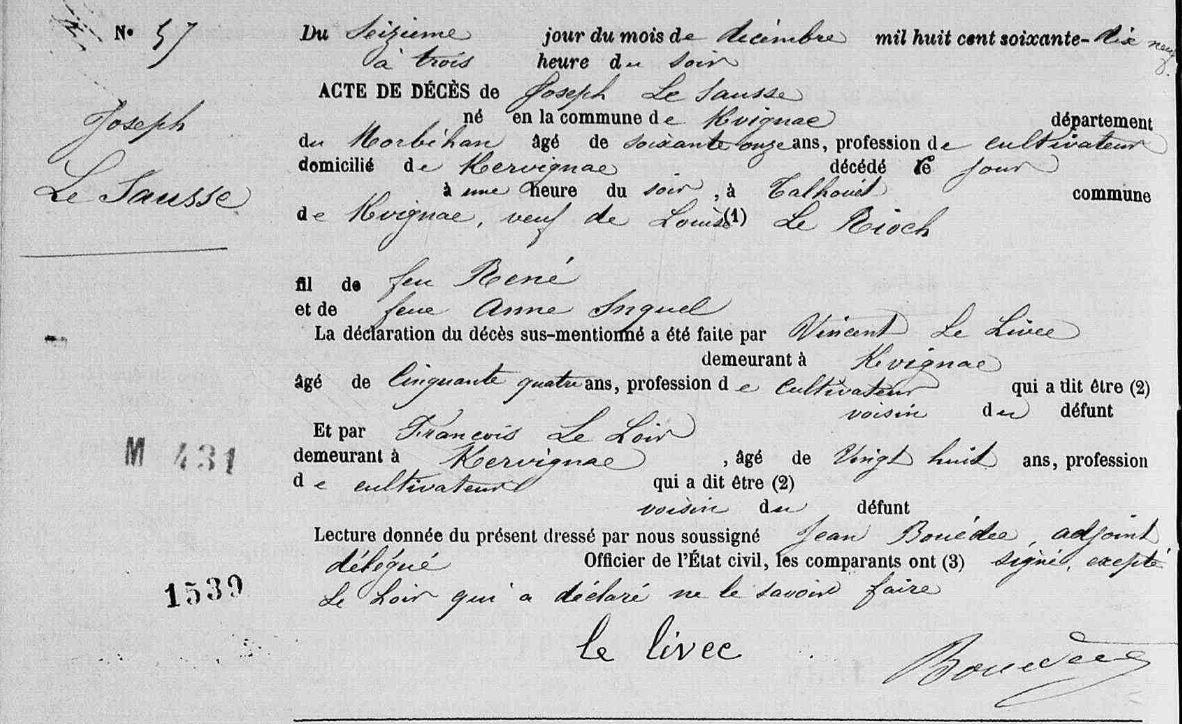 N° 57
Du Seizième jour du mois de décembre mil huit cent soixante-dix neuf
à trois heure du soir
ACTE DE DÉCÈS de Joseph Le Sausse
Joseph
Le Sausse
né en la commune de Kvignac département
du Morbihan âgé de soixante onze ans, profession de cultivateur
domicilié de Kervignac décédé ce jour
à une heure du soir, à Talhouët commune
de Kvignac, veuf de Louise (1) Le Rioch
fil de feu René
et de feue Anne Inquel
La déclaration du décès sus-mentionné a été faite par Vincent Le Livec
demeurant à Kvignac
âgé de Cinquante quatre ans, profession de cultivateur qui a dit être (2)
voisin du défunt
Et par François Le Loir
demeurant à Kervignac, âgé de Vingt huit ans, profession
de cultivateur qui a dit être (2)
voisin du défunt
M 431
Lecture donnée du présent dressé par nous soussigné Jean Bouédec, adjoint
délégué Officier de l'État civil, les comparants ont (3) signé, excepté
Le Loir qui a déclaré ne le savoir faire
1539
le livec
Bouedec